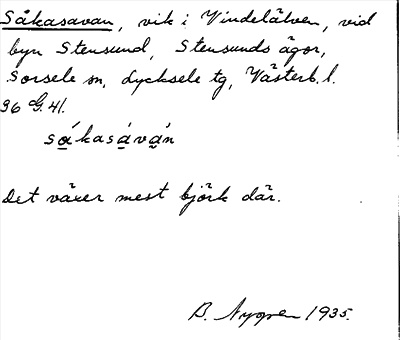 Såkasavan, vik i Vindelälven, vid
byn Stensund, Stensunds ägor,
Sorsele sn, Lycksele tg, Västerb. l.
36 G. 41.
såkasàván
Det växer mest björk där.
B. Nygren 1935.